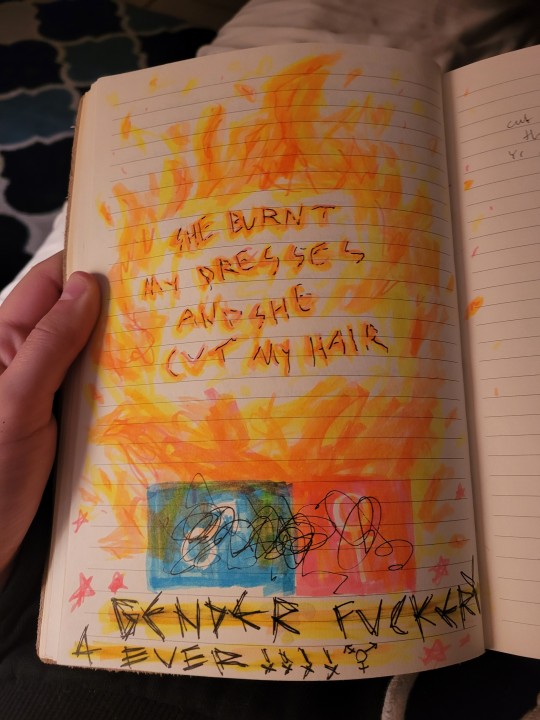 SHE BURNT
MY DRESSES
AND SHE
CUT MY HAIR
GENDER FUCKER
4 EVER !!!! ⚧
cut